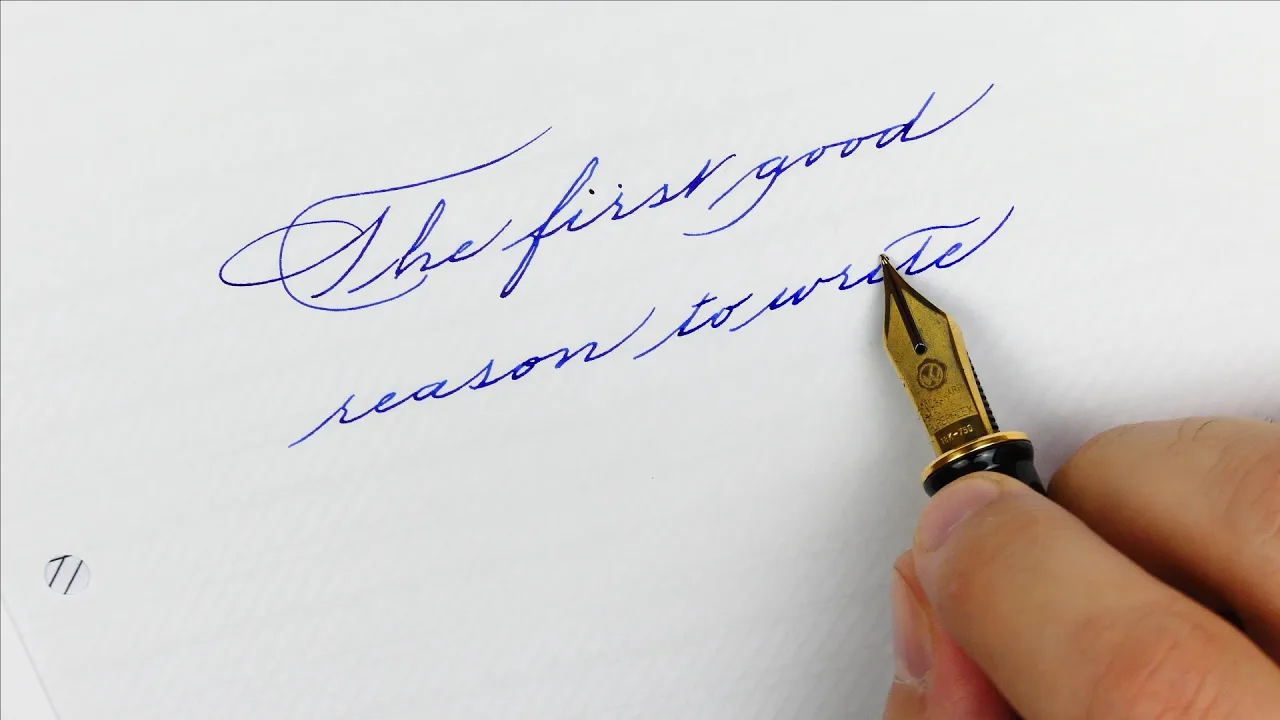 The first good
reason to write
WK-750